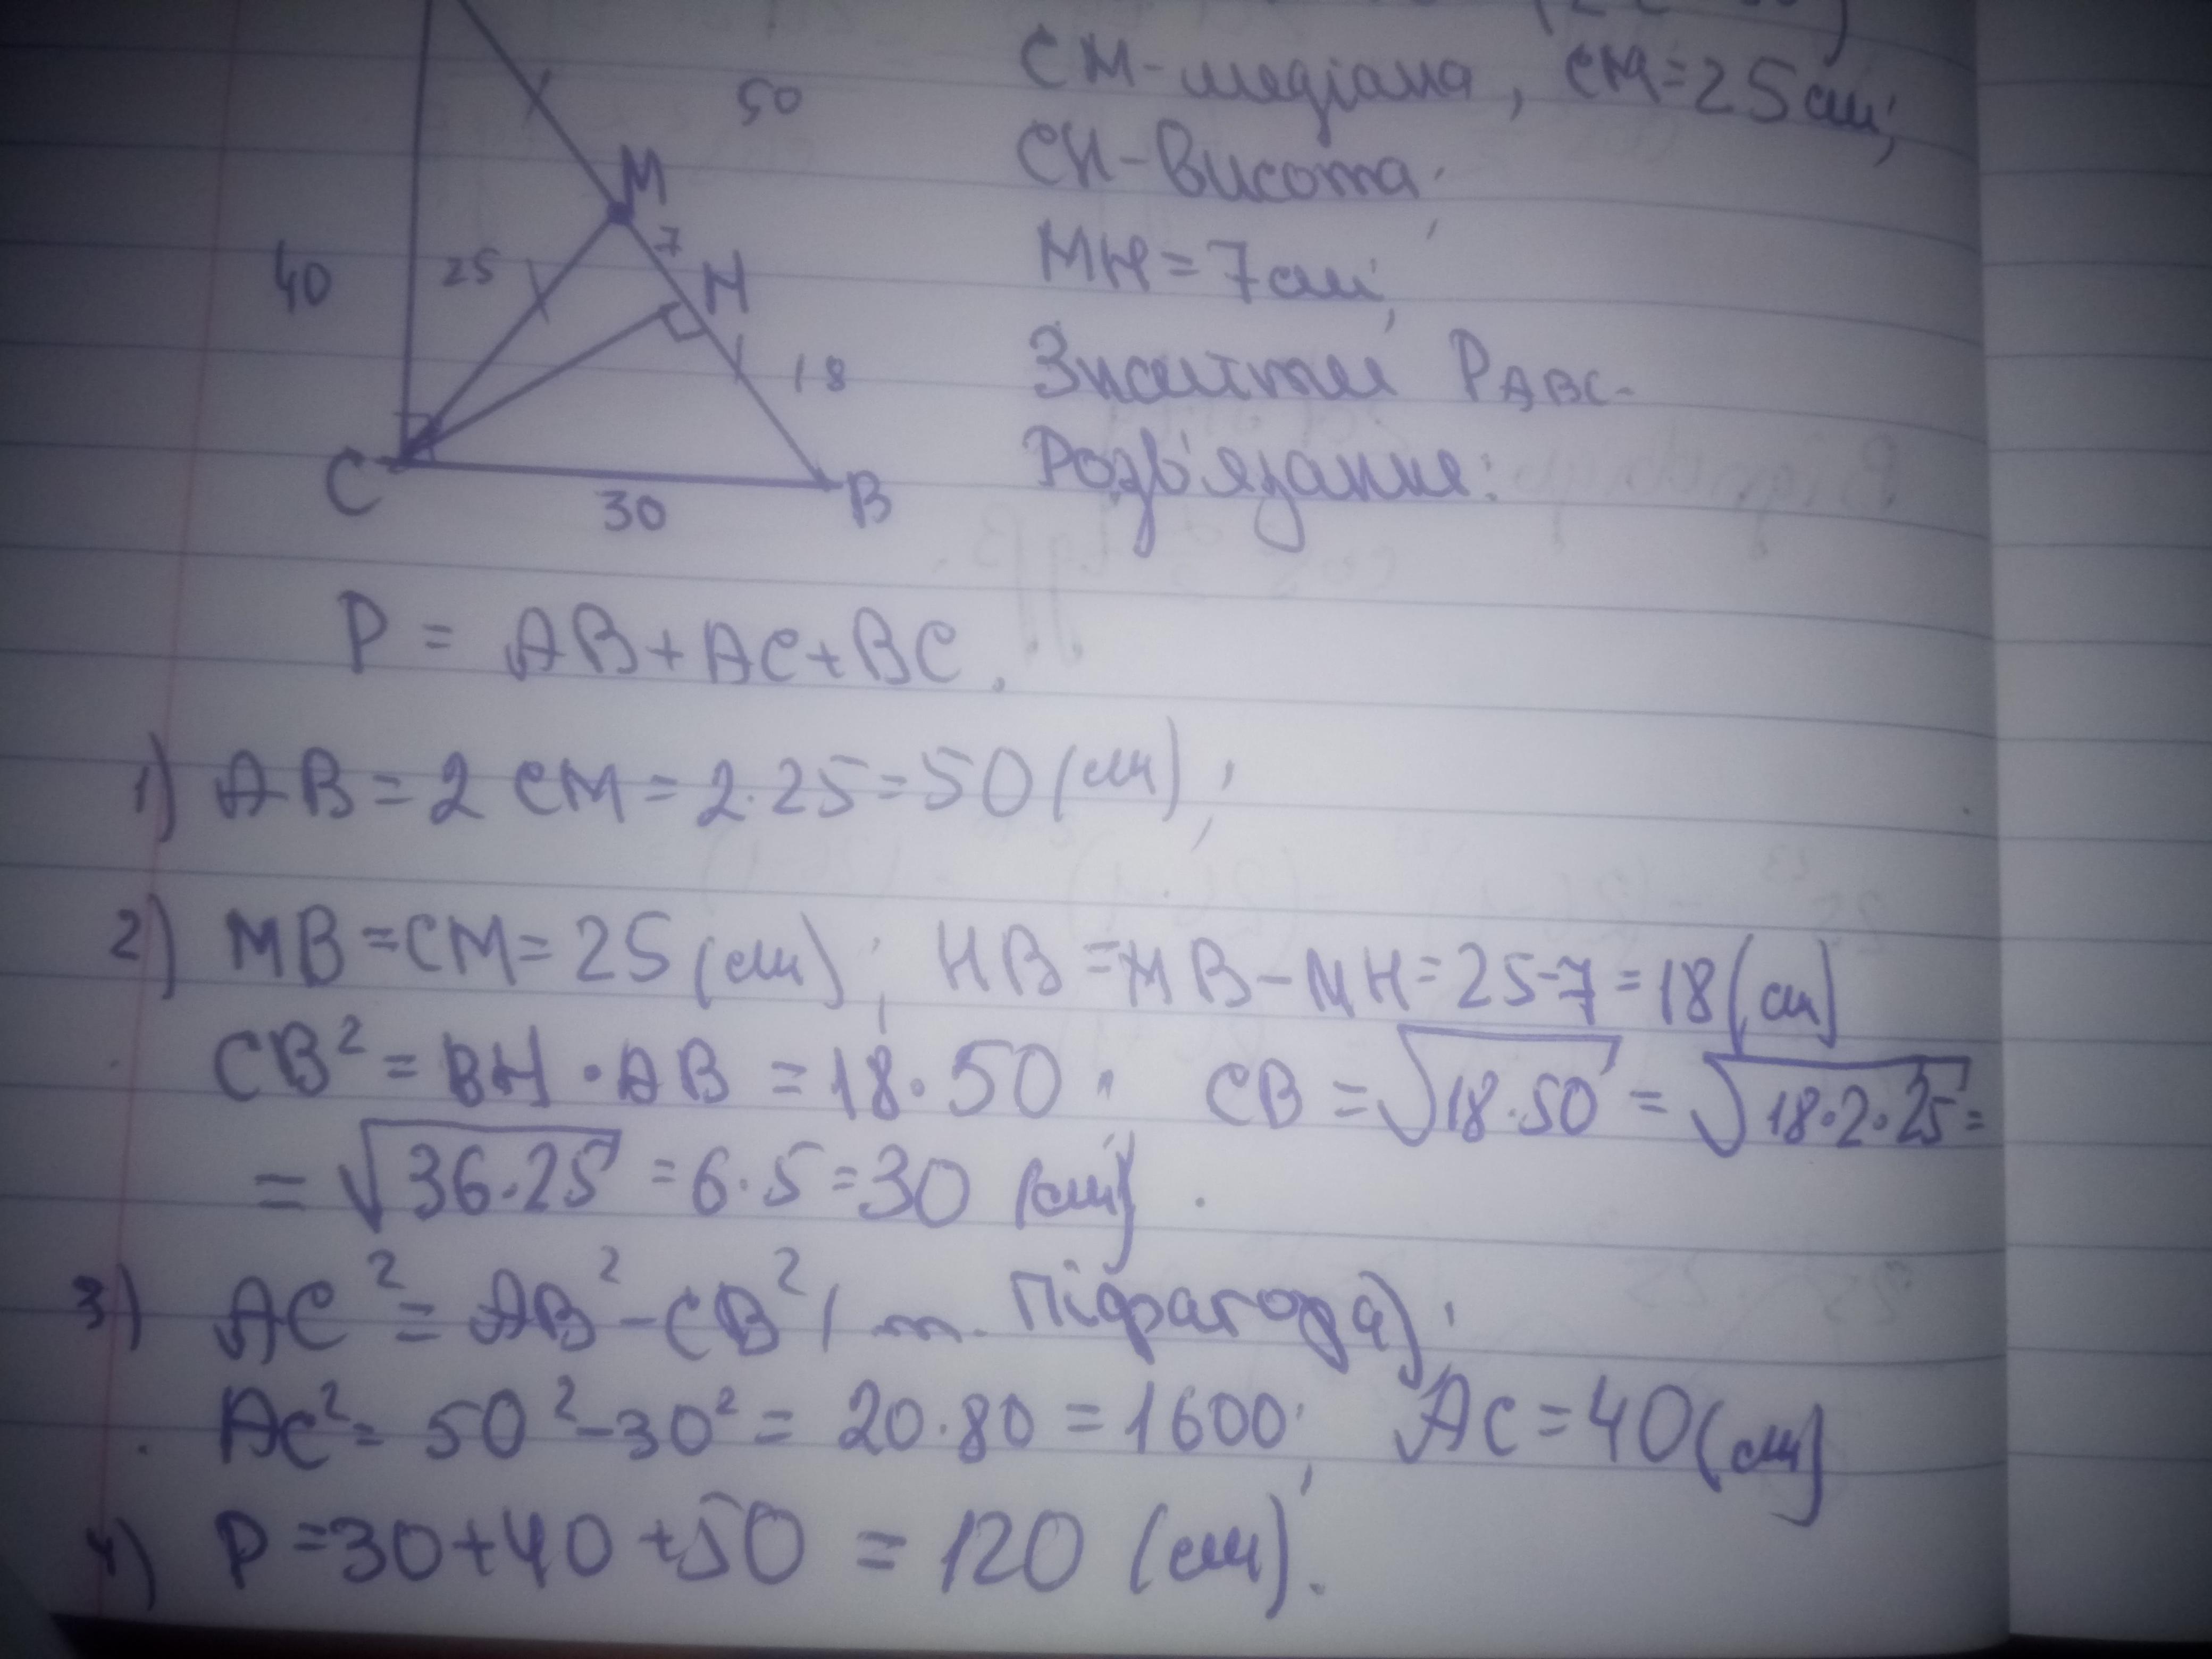 СМ - медіана, СМ = 25 см;
СН - висота;
МН = 7 см;
Знайти P ABC.
Розв'язання:
50
М
7
Н
40
25
18
С
30
В
P = AB + AC + BC.
1) AB = 2 CM = 2·25 = 50 (см);
2) MB = CM = 25 (см); HB = MB - MH = 25-7 = 18 (см)
CB² = BH · AB = 18·50; CB = √18·50 = √18·2·25 =
= √36·25 = 6·5 = 30 (см).
3) AC² = AB² - CB² (т. Піфагора);
AC² = 50² - 30² = 20·80 = 1600; AC = 40 (см)
4) P = 30 + 40 + 50 = 120 (см).